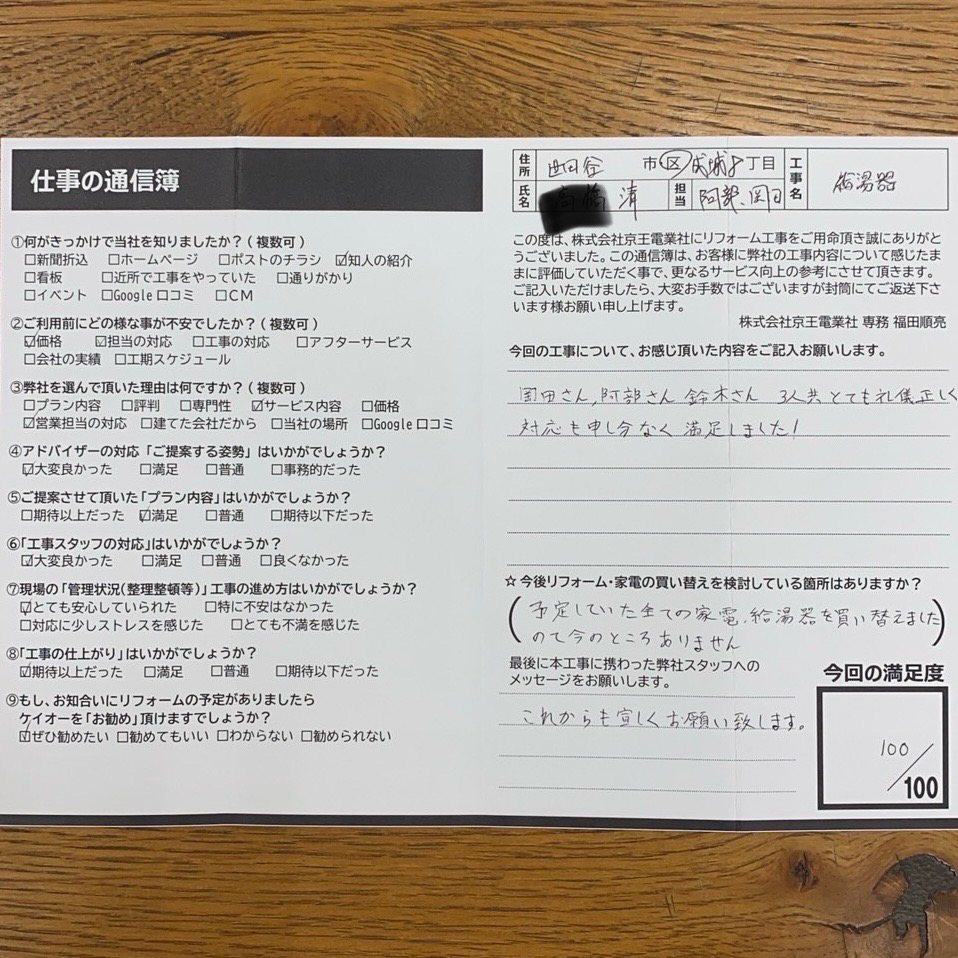 仕事の通信簿
①何がきっかけで当社を知りましたか？(複数可)
☐新聞折込 ☐ホームページ ☐ポストのチラシ ☑知人の紹介
☐看板 ☐近所で工事をやっていた ☐通りがかり
☐イベント ☐Google口コミ ☐CM
②ご利用前にどの様な事が不安でしたか？(複数可)
☑価格 ☑担当の対応 ☐工事の対応 ☐アフターサービス
☐会社の実績 ☐工期スケジュール
③弊社を選んで頂いた理由は何ですか？(複数可)
☐プラン内容 ☐評判 ☐専門性 ☑サービス内容 ☐価格
☑営業担当の対応 ☐建てた会社だから ☐当社の場所 ☐Google口コミ
④アドバイザーの対応「ご提案する姿勢」はいかがでしょうか？
☑大変良かった ☐満足 ☐普通 ☐事務的だった
⑤ご提案させて頂いた「プラン内容」はいかがでしょうか？
☐期待以上だった ☑満足 ☐普通 ☐期待以下だった
⑥「工事スタッフの対応」はいかがでしょうか？
☑大変良かった ☐満足 ☐普通 ☐良くなかった
⑦現場の「管理状況(整理整頓等)」工事の進め方はいかがでしょうか？
☑とても安心していられた ☐特に不安はなかった
☐対応に少しストレスを感じた ☐とても不満を感じた
⑧「工事の仕上がり」はいかがでしょうか？
☑期待以上だった ☐満足 ☐普通 ☐期待以下だった
⑨もし、お知合いにリフォームの予定がありましたら
ケイオーを「お勧め」頂けますでしょうか？
☑ぜひ勧めたい ☐勧めてもいい ☐わからない ☐勧められない
住所 世田谷 市・区 成城8丁目 工事名 給湯器
氏名 清 担当 阿部、岡田
この度は、株式会社京王電業社にリフォーム工事をご用命頂き誠にありがと
うございました。この通信簿は、お客様に弊社の工事内容について感じたま
まに評価していただく事で、更なるサービス向上の参考にさせて頂きます。
ご記入いただけましたら、大変お手数ではございますが封筒にてご返送下さ
います様お願い申し上げます。
株式会社京王電業社 専務 福田順亮
今回の工事について、お感じ頂いた内容をご記入お願いします。
岡田さん,阿部さん 鈴木さん 3人共とても礼儀正しく
対応も申し分なく満足しました!
☆今後リフォーム・家電の買い替えを検討している箇所はありますか？
(予定していた全ての家電,給湯器を買い替えました
ので今のところありません)
最後に本工事に携わった弊社スタッフへの
メッセージをお願いします。
これからも宜しくお願い致します。
今回の満足度
100/100